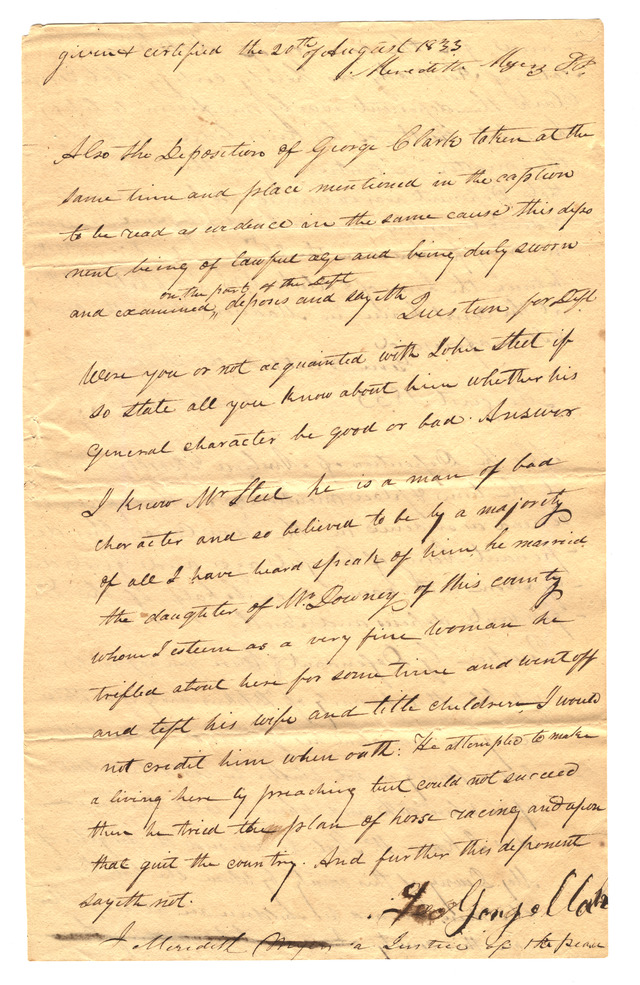 given & certified the 20th of August 1833
Meredith Myers J.P.
Also the Deposition of George Clark taken at the
same time and place mentioned in the caption
to be read as evidence in the same cause this depo
nent being of lawful age and being duly sworn
on the part of the Deft
and examined, deposes and sayeth Question for Deft
Were you or not acquainted with John Steel if
so state all you know about him whether his
general character be good or bad. Answer
I know Mr Steel he is a man of bad
character and so believed to be by a majority
of all I have heard speak of him, he married
the daughter of Mr Downey of this county
whom I esteem as a very fine woman he
trifled about here for some time and went off
and left his wife and little children, I would
not credit him when oath. He attempted to make
a living here by preaching but could not succeed
then he tried the plan of horse racing and upon
that quit the country. And further this deponent
sayeth not.
George Clark
I Meredith Myers a Justice of the peace